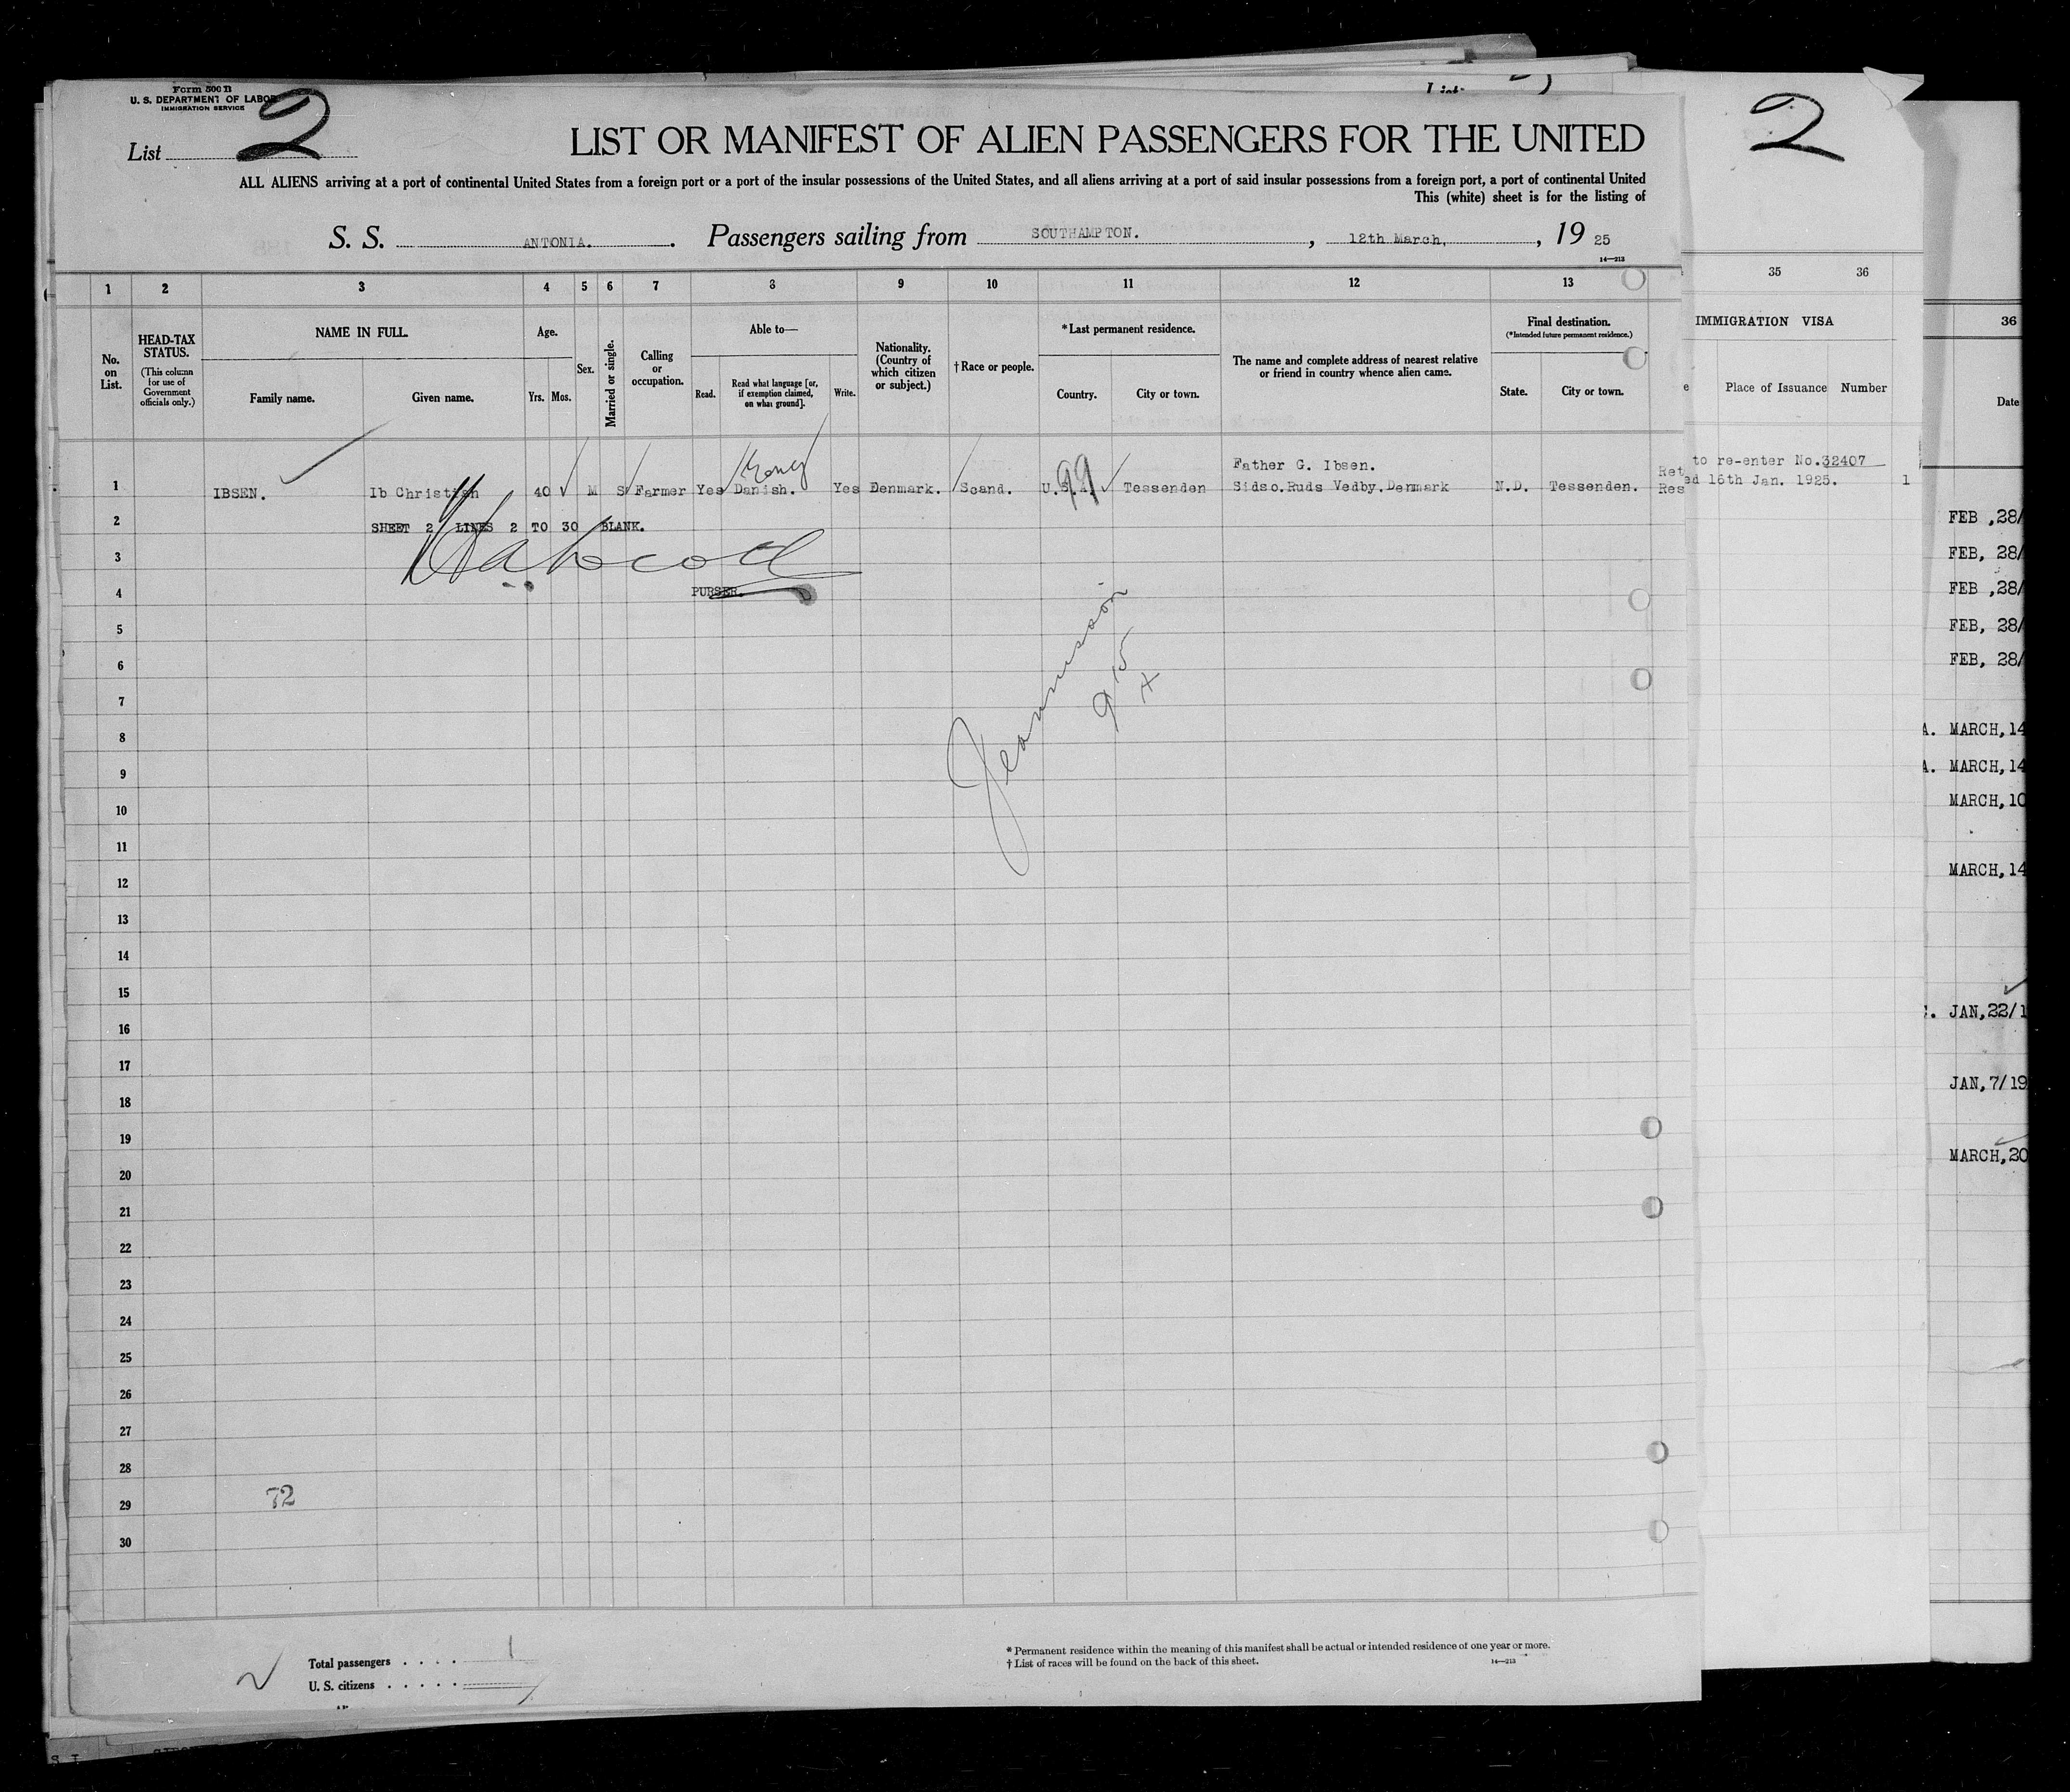 Form 500 B
U. S. DEPARTMENT OF LABOR
IMMIGRATION SERVICE
List 2
LIST OR MANIFEST OF ALIEN PASSENGERS FOR THE UNITED
ALL ALIENS arriving at a port of continental United States from a foreign port or a port of the insular possessions of the United States, and all aliens arriving at a port of said insular possessions from a foreign port, a port of continental United
This (white) sheet is for the listing of
S. S. ANTONIA. Passengers sailing from SOUTHAMPTON. , 12th March, , 19 25
14—213
1 2 3 4 5 6 7 8 9 10 11 12 13
No. on List.
HEAD-TAX STATUS.
(This column for use of Government officials only.)
NAME IN FULL.
Family name. Given name.
Age.
Yrs. Mos.
Sex.
Married or single.
Calling or occupation.
Able to—
Read. Read what language [or, if exemption claimed, on what ground]. Write.
Nationality. (Country of which citizen or subject.)
†Race or people.
*Last permanent residence.
Country. City or town.
The name and complete address of nearest relative or friend in country whence alien came.
Final destination.
(*Intended future permanent residence.)
State. City or town.
Father G. Ibsen.
1 IBSEN. Ib Christian 40 M S Farmer Yes Danish. Yes Denmark. Scand. U.S.A. Tessenden Sidso.Ruds Vedby.Denmark N.D. Tessenden.
99
Ret
Res
2 SHEET 2 LINES 2 TO 30 BLANK.
3
4 PURSER.
5
6
7
8
9
10
11
12
13
14
15
16
17
18
19
20
21
22
23
24
25
26
27
28
29
30
72
915
Total passengers . . . . 1
U. S. citizens . . . . .
* Permanent residence within the meaning of this manifest shall be actual or intended residence of one year or more.
† List of races will be found on the back of this sheet.
14—213
2
35 36
IMMIGRATION VISA
Place of Issuance Number
to re-enter No.32407
ed 16th Jan. 1925. 1
36
Date
FEB ,28/
FEB, 28/
FEB ,28/
FEB, 28/
FEB, 28/
A. MARCH,14
A. MARCH,14
MARCH,10
MARCH,14
JAN,22/1
JAN,7/19
MARCH,20